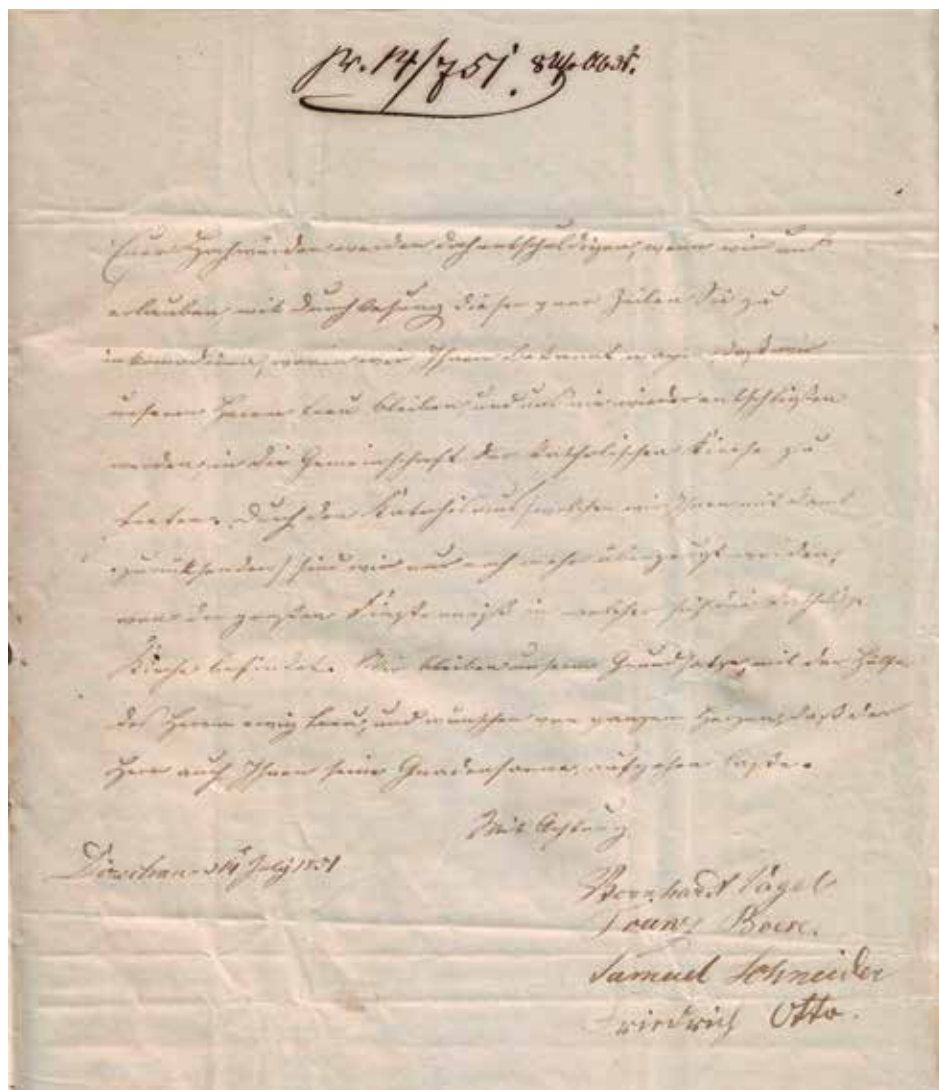 pr. 14/7 51. 8 Uhr Abds.
Euer Hochwürden werden doch entschuldigen, wenn wir uns
erlauben, mit Durchlesung dieser paar Zeilen Sie zu
inkomodiren, worin wir Ihnen bekannt daß wir
unserem Herrn treu bleiben und uns nie wieder entschließen
werden, in die Gemeinschaft der katholischen Kirche zu
treten. Durch den Katechismus (welchen wir Ihnen mit Dank
zurüksenden) sind wir nur noch mehr überzeugt worden,
von der großen Finsterniß in welcher sich die katholische
Kirche befindet. Wir bleiben unserem Grundsatze, mit der Hülfe
des Herrn ewig treu, und wünschen von ganzem Herzen, daß der
Herr auch Ihnen seine Gnadensonne, aufgehen lasse.
Mit Achtung
14 July 1851
Bernhardt Vögel
Samuel Schneider
Friedrich Otto.